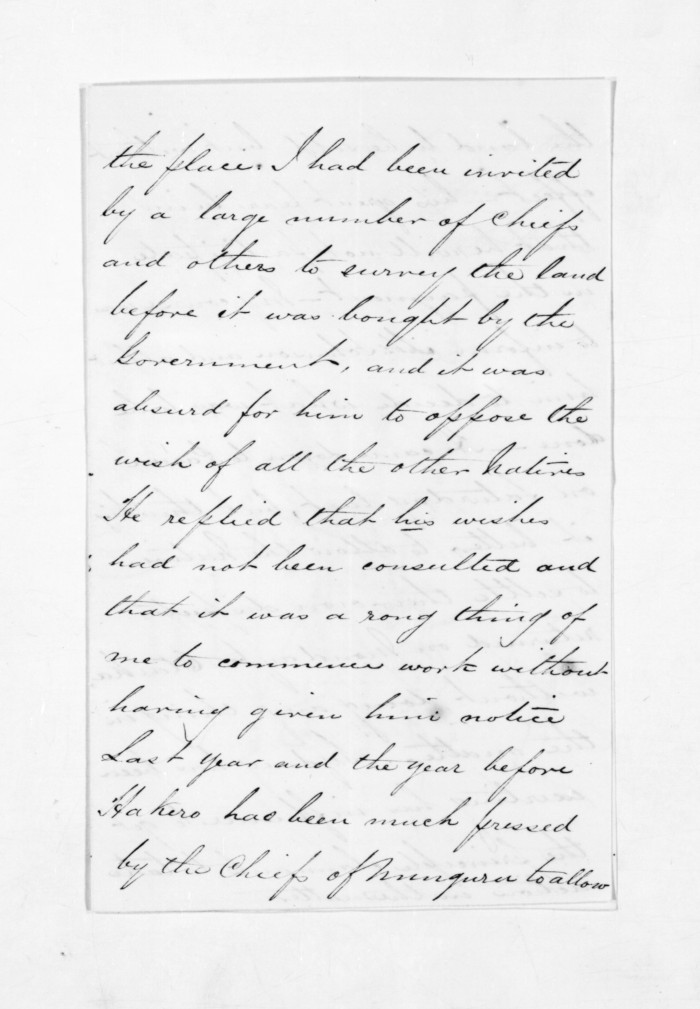 the place. I had been invited
by a large number of Chiefs
and others to survey the land
before it was bought by the
Government, and it was
absurd for him to oppose the
wish of all the other Natives
He replied that his wishes
had not been consulted and
that it was a rong thing of
me to commence work without
having given him notice
Last year and the year before
Hakero has been much pressed
by the Chiefs of to allow